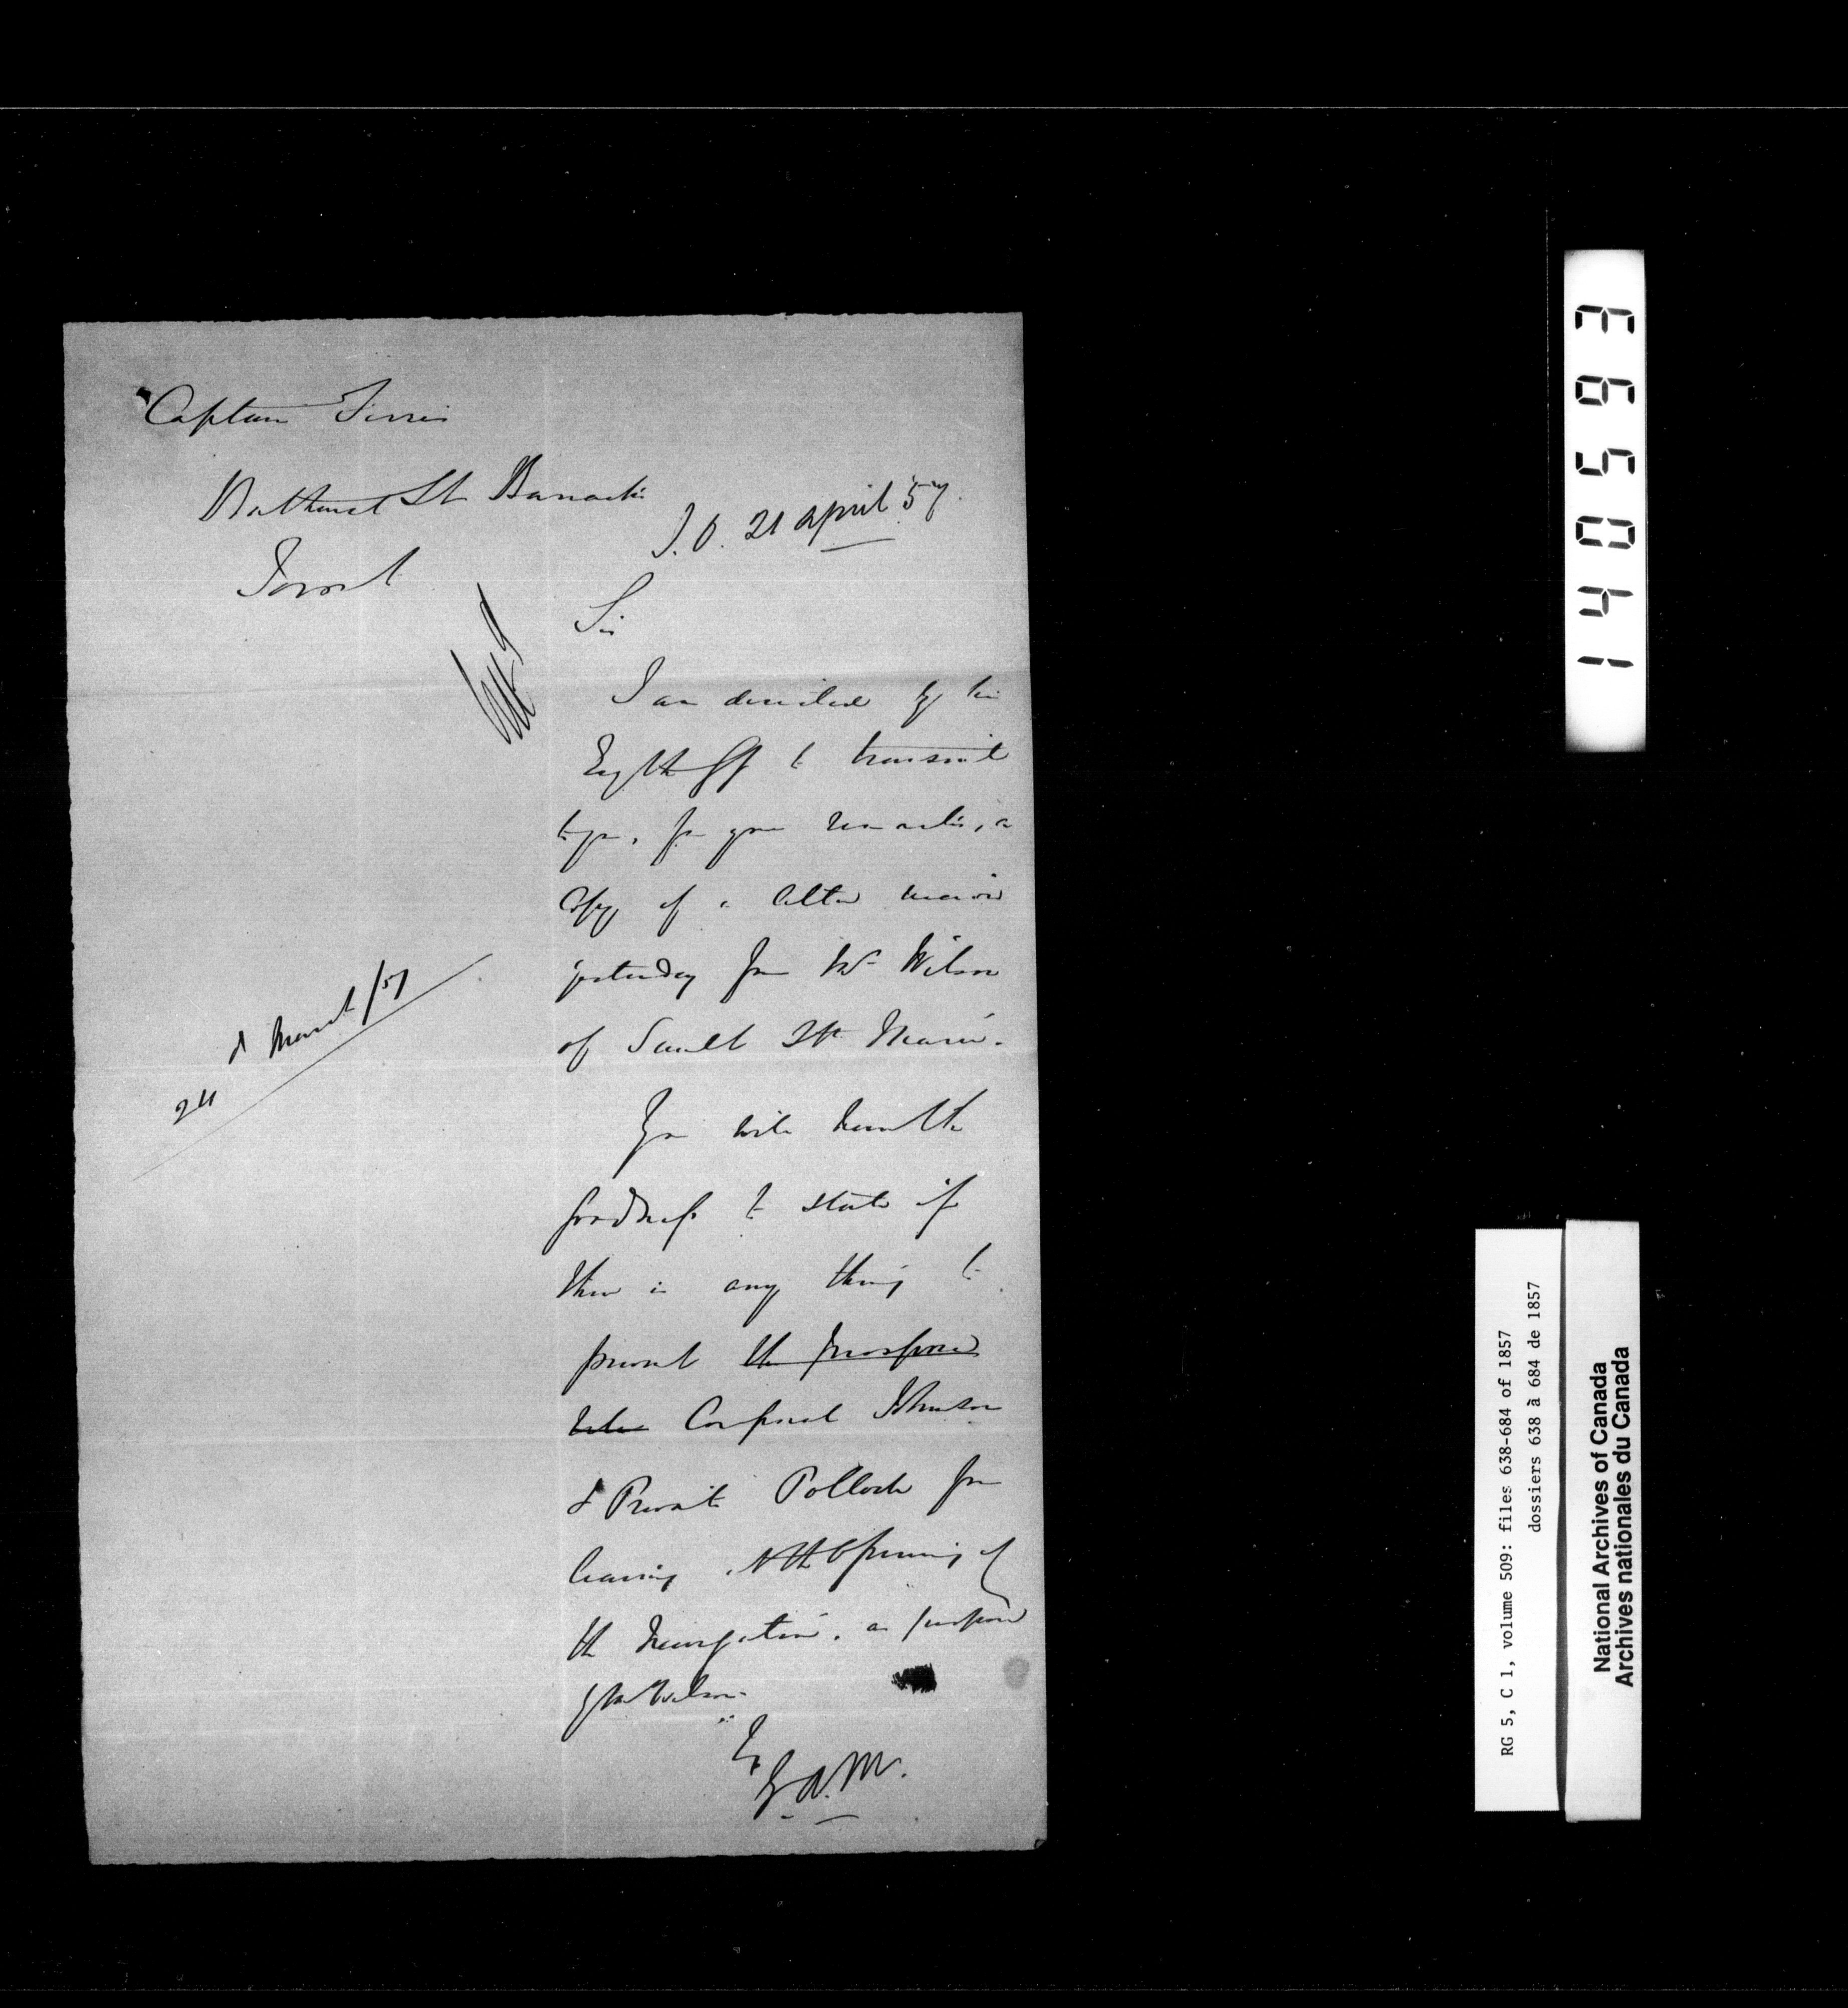 Captain
Bathurst St Barracks
Toront
S.O. 21 april '57.
Sir
I am directed by his
Exy the GG to transmit
to you, for your remarks, a
Copy of a letter received
yesterday from Mr Wilson
of Sault Ste Marie.
24 March /57
You will have the
goodness to state if
there is any thing to
prevent the proposed
Corporal Johnson
& Private Pollock from
leaving at the Opening of
the Navigation, as proposed
by Mr Wilson.
E.A.M.
140593
RG 5, C 1, volume 509: files 638-684 of 1857
dossiers 638 à 684 de 1857
National Archives of Canada
Archives nationales du Canada